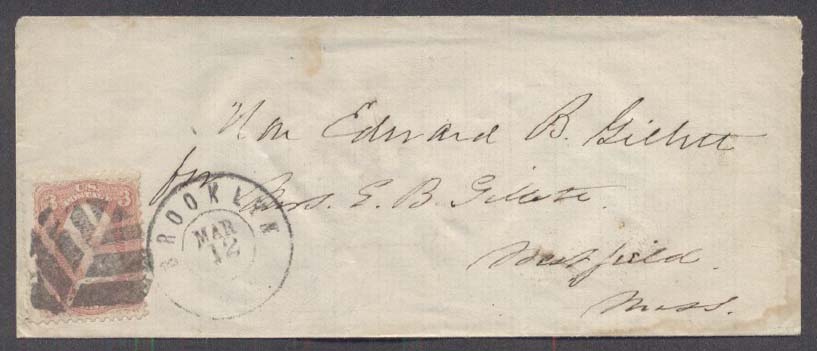 Hon Edward B. Gillett
for Mrs. E. B. Gillett.
Westfield.
Mass.
U.S.
POSTAGE
3 3
BROOKLYN
MAR
12